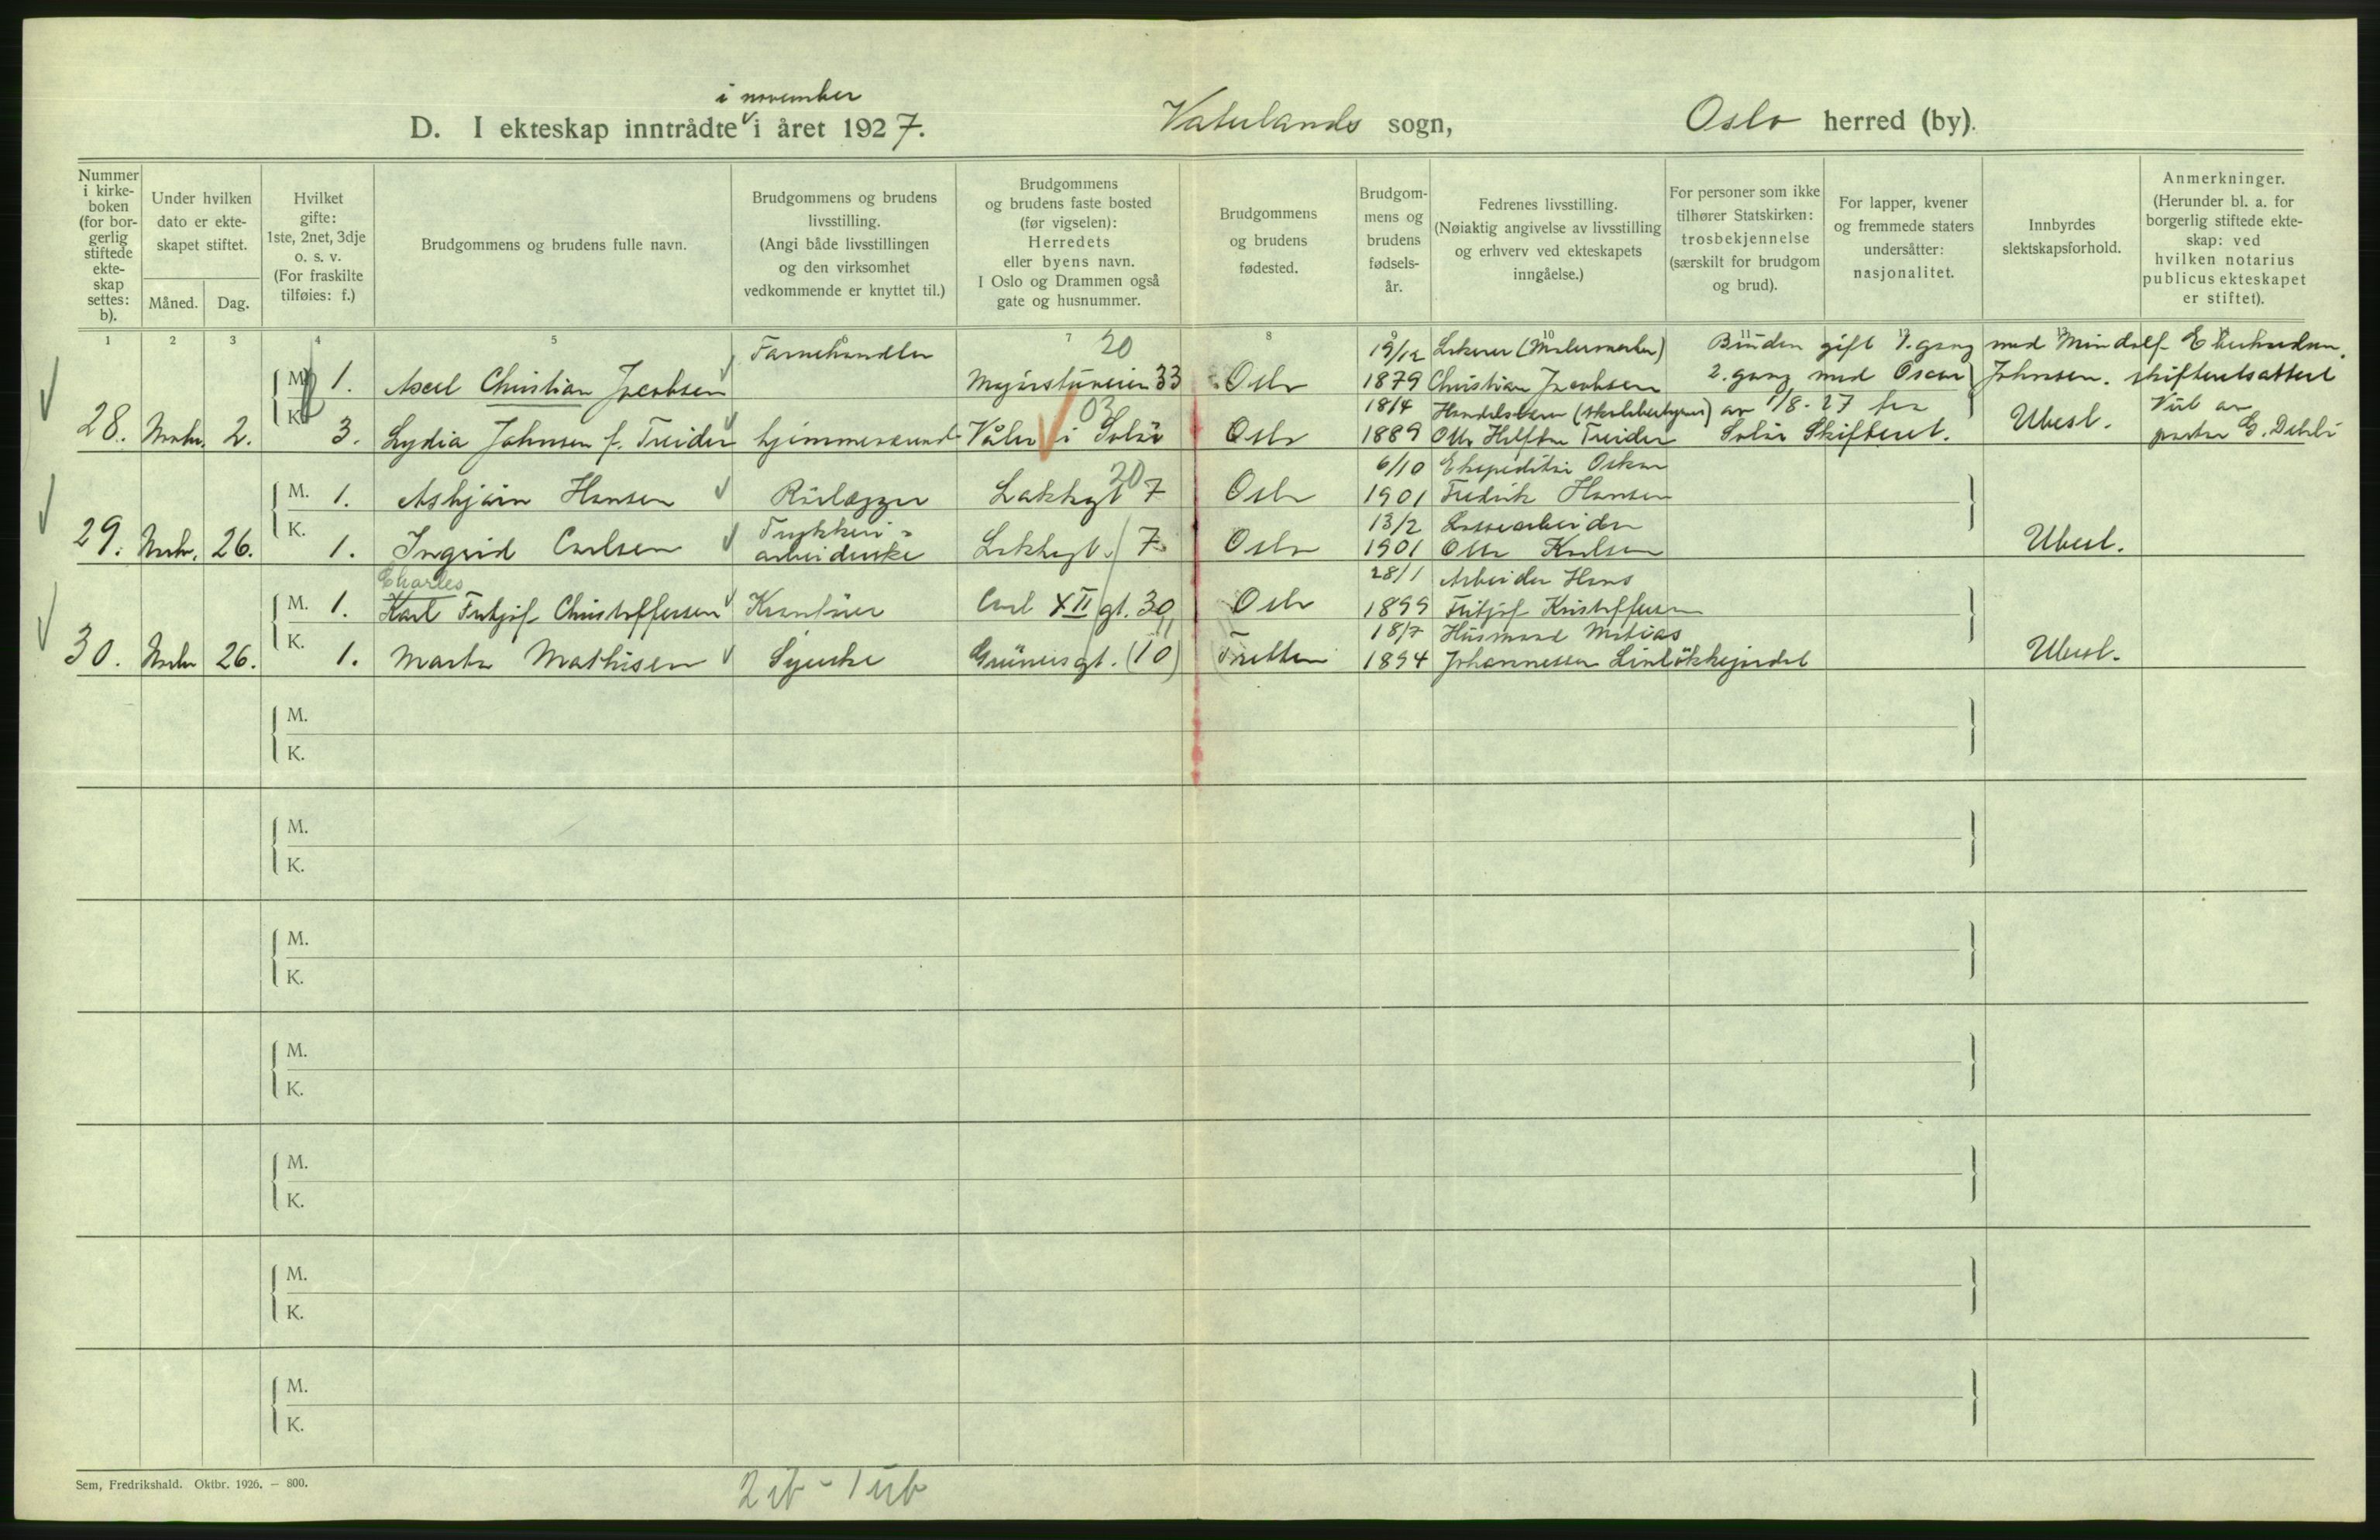 i november
D. I ekteskap inntrådte i året 1927. Vaterlands sogn, Oslo herred (by).
Nummer i kirkeboken (for borgerlig stiftede ekteskap settes: b).
Under hvilken dato er ekteskapet stiftet.
Måned. Dag.
Hvilket gifte: 1ste, 2net, 3dje o. s. v. (For fraskilte tilføies: f.)
Brudgommens og brudens fulle navn.
Brudgommens og brudens livsstilling. (Angi både livsstillingen og den virksomhet vedkommende er knyttet til.)
Brudgommens og brudens faste bosted (før vigselen): Herredets eller byens navn. I Oslo og Drammen også gate og husnummer.
Brudgommens og brudens fødested.
Brudgommens og brudens fødselsår.
Fedrenes livsstilling. (Nøiaktig angivelse av livsstilling og erhverv ved ekteskapets inngåelse.)
For personer som ikke tilhører Statskirken: trosbekjennelse (særskilt for brudgom og brud).
For lapper, kvener og fremmede staters undersåtter: nasjonalitet.
Innbyrdes slektskapsforhold.
Anmerkninger. (Herunder bl. a. for borgerlig stiftede ekteskap: ved hvilken notarius publicus ekteskapet er stiftet).
1 2 3 4 5 7 8 9 10 11
Farvehandler 20 19/12 Lakerer (Malermester) Bruden gift 1. gang med
M. 1. Axel Christian Jacobsen Majorstuveien 33 Oslo 1879 Christian Jacobsen 2. gang med Oscar Johnsen. skifteretsattest
03 18/4 av 1/8-27 fra
28. Novbr. 2. K. 3. Lydia Johnsen f. Treider hjemmeværende Våler i Solør Oslo 1889 Otto Treider Solør Skifteret. Ubesl. Viet av G.
20 6/10 Ekspeditør Oskar
M. 1. Asbjørn Hansen Rørlægger Lakkegt 7 Oslo 1901 Fredrik Hansen
Trykkeri- 13/2 Lossearbeider
29. Novbr. 26. K. 1. Ingrid Carlsen arbeiderske Lakkegt. 7 Oslo 1901 Otto Karlsen Ubesl.
Charles 28/1 Arbeider Hans
M. 1. Karl Fritjof Christoffersen Kranfører Carl XII gt. 30 Oslo 1899 Fritjof Kristoffersen
18/7 Husmand Matias
30. Novbr 26. K. 1. Marta Mathisen Syerske Grünersgt. (10) Tretten 1894 Johannessen Ubesl.
M.
K.
M.
K.
M.
K.
M.
K.
M.
K.
M.
K.
M.
K.
Sem, Fredrikshald. Oktbr. 1926. — 800.
2 ib - 1 ub